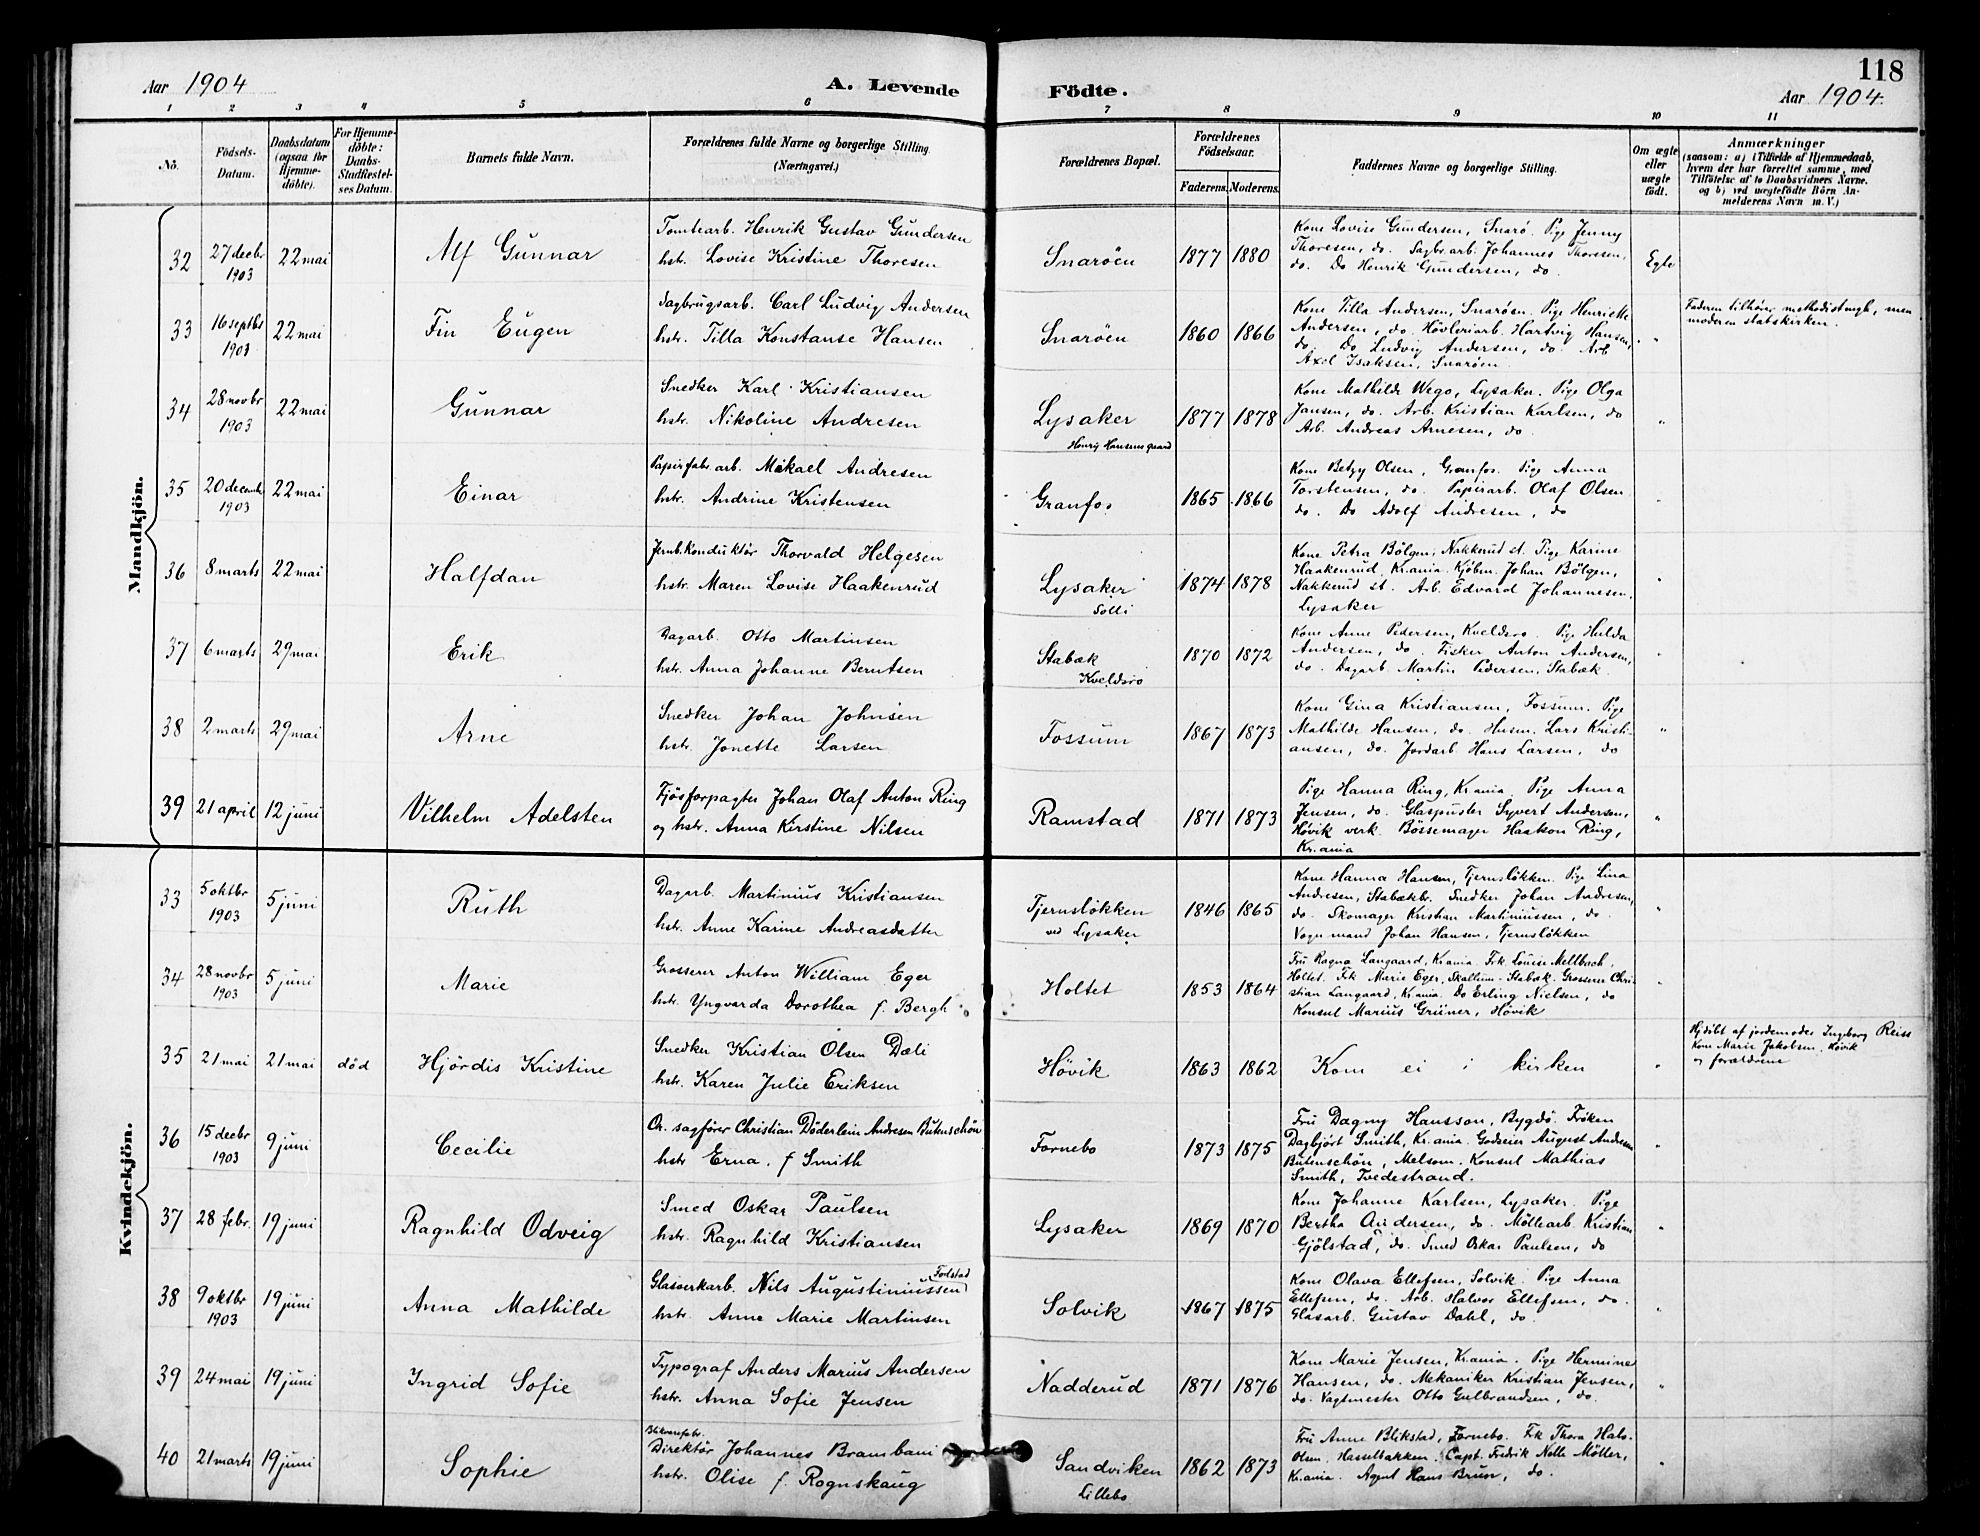 118
Aar 1904
A. Levende Födte.
Aar 1904.
1 2 3 4 5 6 7 8 9 10 11
No.
Födsels-Datum.
Daabsdatum (ogsaa for Hjemme-döbte).
For Hjemme-döbte: Daabs-Stadfæstel-ses Datum.
Barnets fulde Navn.
Forældrenes fulde Navne og borgerlige Stilling. (Næringsvei.)
Forældrenes Bopæl.
Forældrenes Födselsaar.
Faderens. Moderens.
Faddernes Navne og borgerlige Stilling.
Om ægte eller uægte födt.
Anmærkninger
(saasom: a) i Tilfælde af Hjemmedaab,
hvem der har forrettet samme, med
Tilföielse af to Daabsvidners Navne.
og b) ved uægtefödte Börn An-
melderens Navn m. V.)
Mandkjön.
32 27 decbr 1903 22 mai Alf Gunnar
Tomtearb. Henrik Gustav Gundersen
hstr. Lovise Kristine Thoresen
Snaröen 1877 1880
Kone Lovise Gundersen, Snarö. Pige Jenny
Thoresen, do. Sagbr.arb. Johannes Thoresen,
do. Do Henrik Gundersen, do.
Egte
33 16 septbr 1903 22 mai Fin Eugen
Sagbrugsarb. Carl Ludvig Andersen
hstr. Tilla Konstanse Hansen
Snaröen 1860 1866
Kone Tilla Andersen, Snaröen. Pige Henriette
Andersen, do. Hövleriarb. Hartvig Hansen,
do. Do Ludvig Andersen, do. Arb.
Axel Isaksen, Snaröen.
"
Faderen tilhörer methodistmgh, men
moderen statskirken.
34 28 novbr 1903 22 mai Gunnar
Snedker Karl Kristiansen
hstr. Nikoline Andresen
Lysaker
Henrig Hansens gaard
1877 1878
Kone Mathilde Wego, Lysaker. Pige Olga
Jansen, do. Arb. Kristian Karlsen, do
Arb. Andreas Arnesen, do.
"
35 20 decembr 1903 22 mai Einar
Papirfabr.arb. Mikael Andresen
hstr. Andrine Kristensen
Granfos 1865 1866
Kone Betzy Olsen, Granfos. Pige Anna
Torstensen, do. Papirarb. Olaf Olsen
do. Do Adolf Andresen, do
"
36 8 marts 22 mai Halfdan
Jernb.konduktör Thorvald Helgesen
hstr. Maren Lovise Haakenrud
Lysaker
Solli
1874 1878
Kone Petra Bölgen, Nakkerud st. Pige Karine
Haakenrud, Kr.ania. Kjöbm. Johan Bölgen,
Nakkerud st. Arb. Edvard Johannesen,
Lysaker
"
37 6 marts 29 mai Erik
Dagarb. Otto Martinsen
hstr. Anna Johanne Berntsen
Stabæk
Kveldsro
1870 1872
Kone Anne Pedersen, Kveldsro. Pige Hulda
Andersen, do. Fisker Anton Andersen,
do. Dagarb. Martin Pedersen, Stabæk.
"
38 2 marts 29 mai Arne
Snedker Johan Johnsen
hstr. Jonette Larsen
Fossum 1867 1873
Kone Gina Kristiansen, Fossum. Pige
Mathilde Hansen, do. Husm. Lars Kristi-
ansen, do. Jordarb Hans Larsen, do
"
39 21 april 12 juni Vilhelm Adelsten
Fjösforpagter Johan Olaf Anton Ring
og hstr. Anna Kirstine Nilsen
Ramstad 1871 1873
Pige Hanna Ring, Kr.ania. Pige Anna
Jensen, do. Glaspuster Syvert Andersen,
Hövik verk. Bössemager Haakon Ring,
Kr.ania
"
Kvindekjön.
33 5 oktbr 1903 5 juni Ruth
Dagarb. Martinius Kristiansen
hstr. Anne Karine Andreasdatter
Tjernslökken
ved Lysaker
1846 1865
Kone Hanna Hansen, Tjernslökken. Pige Lina
Andresen, Stabækbr. Snedker Johan Andresen,
do. Skomager Kristian Martiniussen, do.
Vognmand Johan Hansen, Tjernslökken
"
34 28 novbr 1903 5 juni Marie
Grosserer Anton William Eger
hstr. Yngvarda Dorothea f. Bergh
Holtet 1853 1864
Fru Ragna Langaard, Kr.ania. Frk. Louise Mellbach,
Holtet. Frk Marie Eger, Skallum - Stabæk. Grosserer Chri-
stian Langaard, Kr.ania. Do Erling Nielsen, do
Konsul Marius Grüner, Hövik
"
35 21 mai 21 mai död Hjördis Kristine
Snedker Kristian Olsen Dæli
hstr. Karen Julie Eriksen
Hövik 1863 1862
Kom ei i kirken
"
Hj.döbt af jordemoder Ingeborg Reiss
Kone Marie Jakobsen, Hövik
og forældrene
36 15 decbr 1903 9 juni Cecilie
Or. sagförer Christian Döderlein Andresen Butenschön
hstr Erna. f Smith
Fornebo 1873 1875
Fru Dagny Hansson, Bygdö. Fröken
Dagbjört Smith, Kr.ania. Godseier August Andresen
Butenschön, Melsom. Konsul Mathias
Smith, Tvedestrand.
"
37 28 febr. 19 juni Ragnhild Odveig
Smed Oskar Paulsen
hstr. Ragnhild Kristiansen
Lysaker 1869 1870
Kone Johanne Karlsen, Lysaker. Pige
Bertha Andersen, do. Möllearb. Kristian
Gjölstad, do. Smed Oskar Paulsen, do
"
38 9 oktbr 1903 19 juni Anna Mathilde
Glasverkarb. Nils Augustiniussen Fodstad
hstr. Anne Marie Martinsen
Solvik 1867 1875
Kone Olava Ellefsen, Solvik. Pige Anna
Ellefsen, do. Arb. Halvor Ellefsen, do.
Glasarb. Gustav Dahl, do.
"
39 24 mai 19 juni Ingrid Sofie
Typograf Anders Marius Andersen
hstr. Anna Sofie Jensen
Nadderud 1871 1876
Kone Marie Jensen, Kr.ania. Pige Hermine
Hansen, do. Mekaniker Kristian Jensen,
do. Vagtmester Otto Gulbrandsen, do.
"
40 21 marts 19 juni Sophie
Direktör Johannes Brambani
hstr. Olise f. Rognskaug
Sandviken
Lillebo
1862 1873
Fru Anne Blikstad, Fornebo. Frk Thora Hals-
Olsen, Hasselbakken. Capt. Fredrik Nolle Möller,
Kr.ania. Agent Hans Brun, do.
"